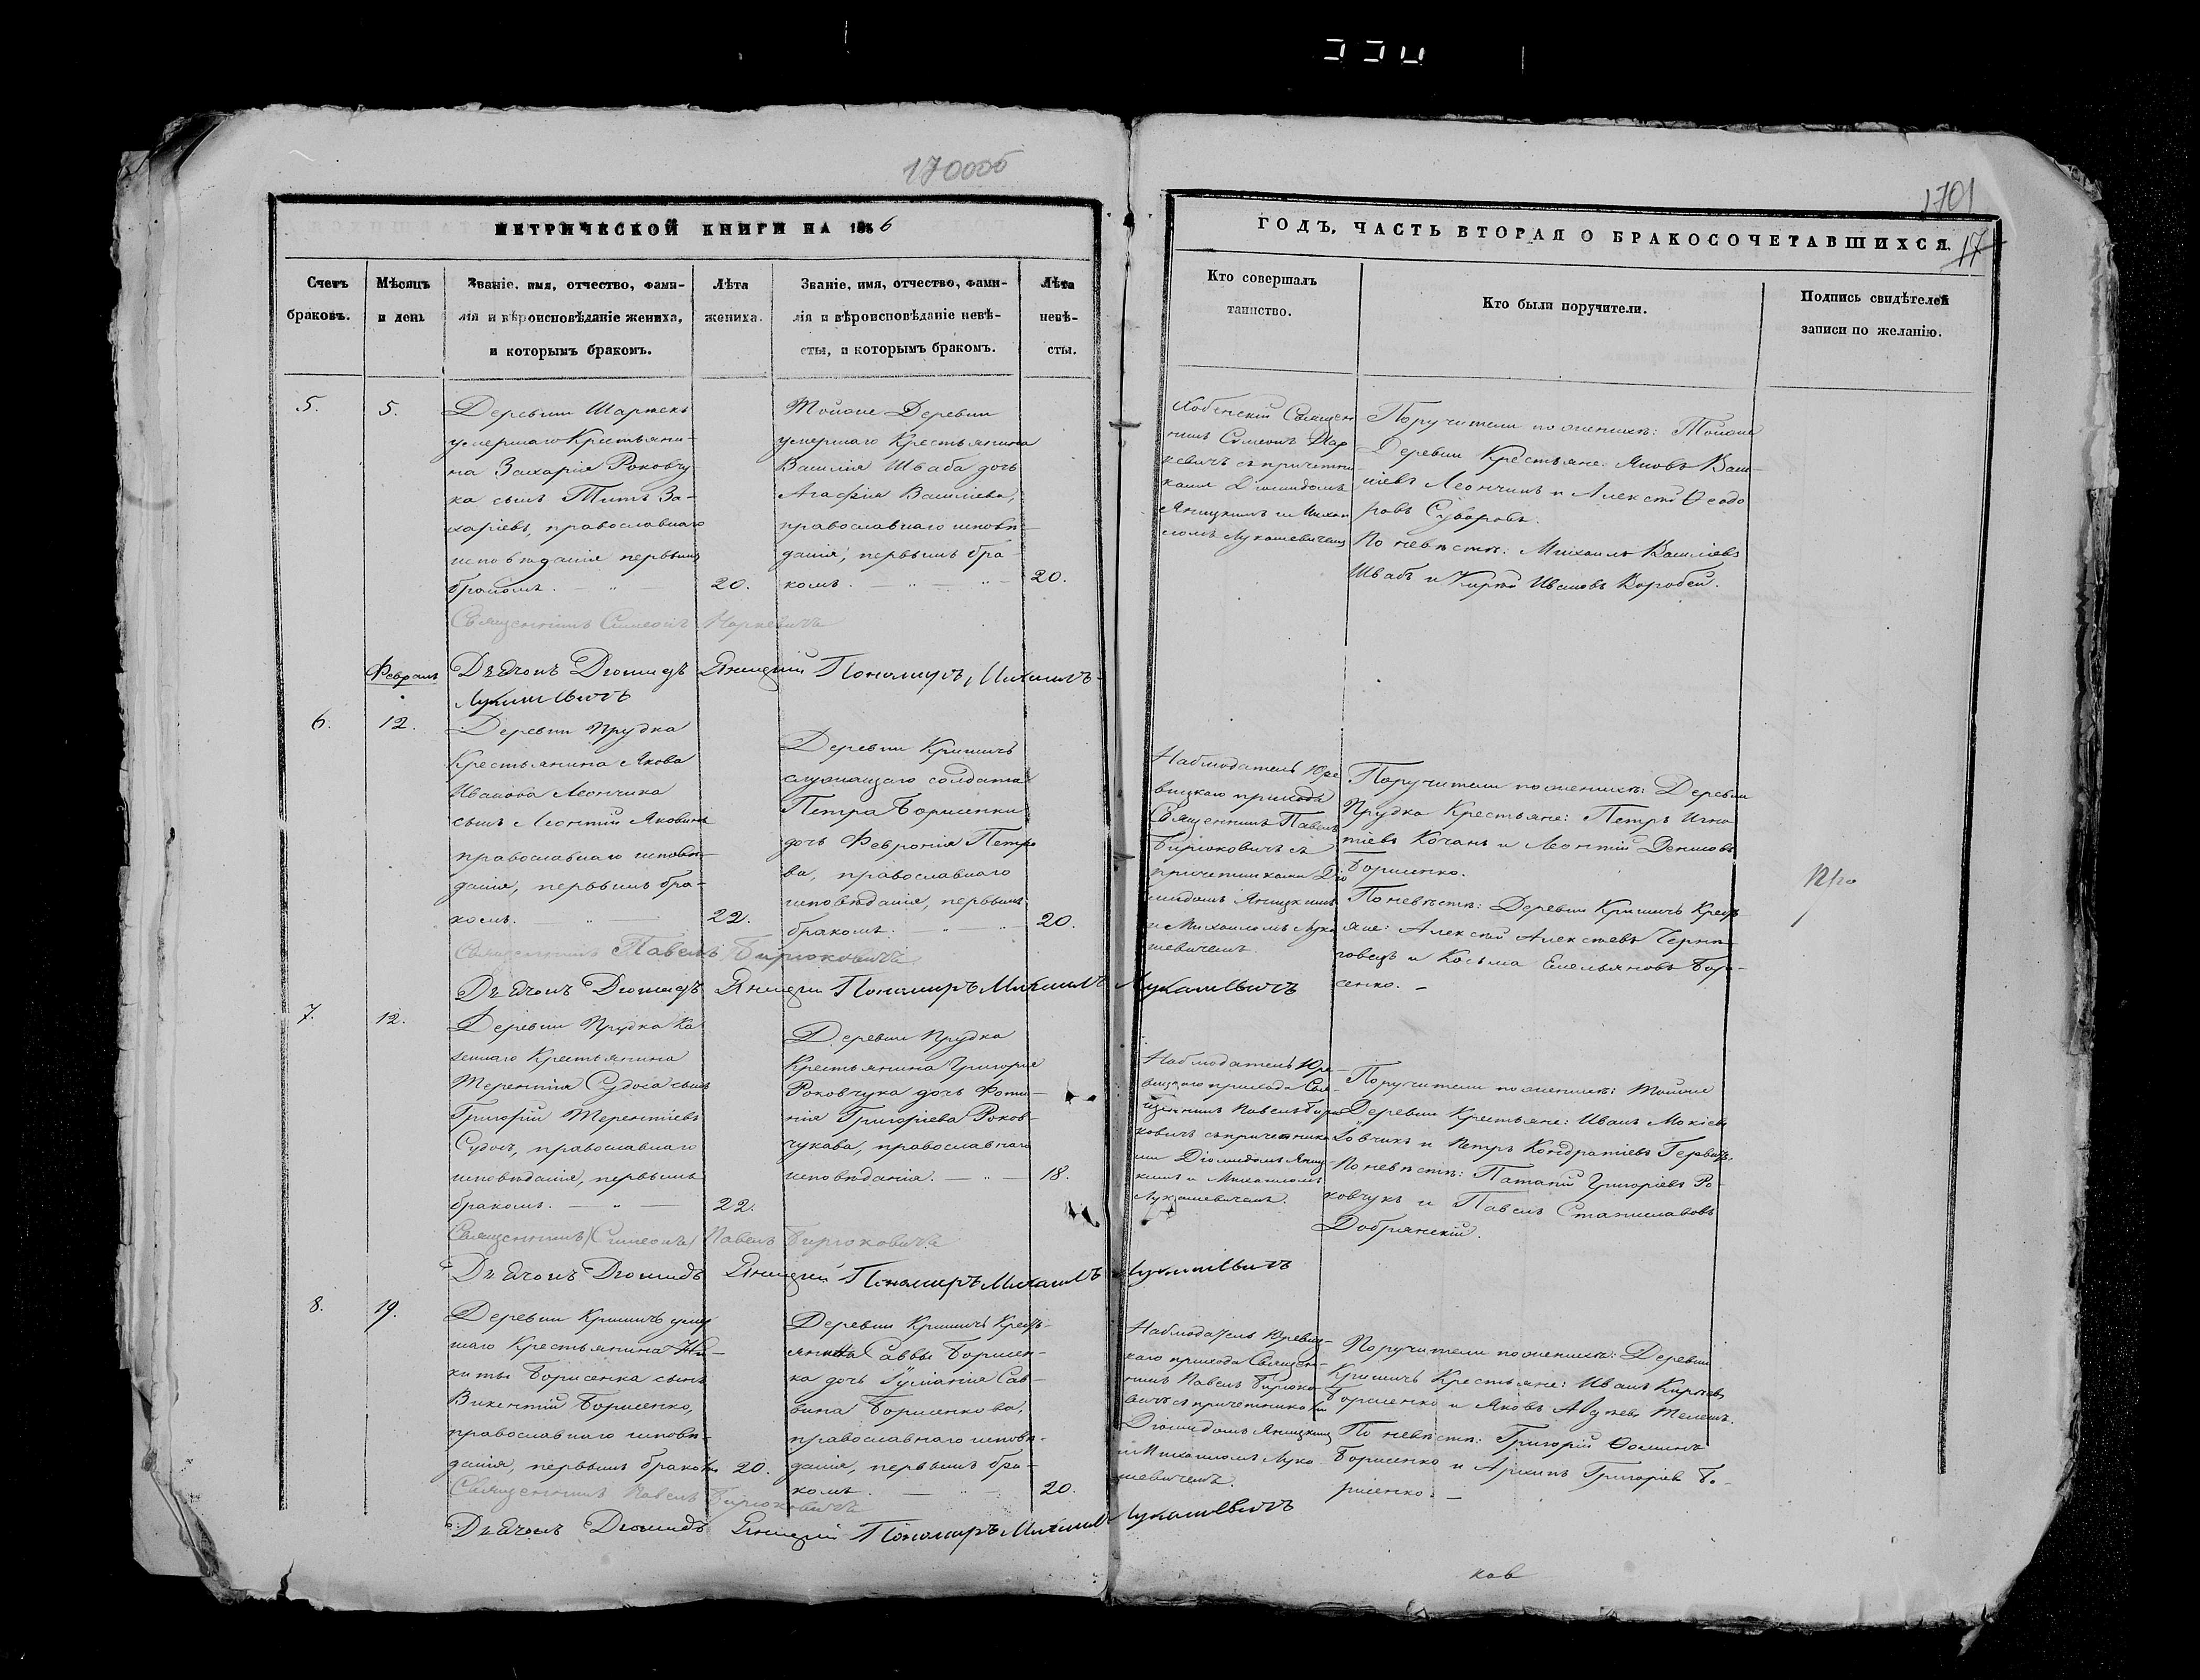 170об
1701
17
МЕТРИЧЕСКОЙ КНИГИ НА 1856
ГОДЪ, ЧАСТЬ ВТОРАЯ О БРАКОСОЧЕТАВШИХСЯ.
Счетъ
браковъ.
Мѣсяцъ
и день
Званіе, имя, отчество, фами-
лія и вѣроисповѣданіе жениха,
и которымъ бракомъ.
Лѣта
жениха.
Званіе, имя, отчество, фами-
лія и вѣроисповѣданіе невѣ-
сты, и которымъ бракомъ.
Лѣта
невѣ-
сты.
Кто совершалъ
таинство.
Кто были поручители.
Подпись свидѣтелей
записи по желанію.
5.
5.
Деревни
умершаго Крестьяни-
на Захарія Роковчу
ка сынъ Титъ За-
харіевъ, православнаго
исповѣданія первымъ
бракомъ.
20.
Тойже Деревни
умершаго Крестьянина
Василія Шваба дочь
Агафія Василіева,
православнаго исповѣ-
данія, первымъ бра-
комъ.
20.
Священ
никъ Симеонъ Мар
кевичъ съ причетни-
ками Діомидомъ
Яницкимъ и Михаи
ломъ Лукашевичемъ
Поручители по женихѣ: Тойже
Деревни Крестьяне: Яковъ Васи-
ліевъ Леончикъ и Алексѣй Ѳеодо
ровъ Суворовъ.
По невѣстѣ: Михаилъ Василіевъ
Швабъ и Иванов Воробей.
Священникъ Симеонъ Маркевичъ
Февраль
Дьячокъ Диомидъ Яницкій Пономарь, Михаилъ
Лукашевичъ
6.
12.
Деревни Прудка
Крестьянина Якова
Иванова Леончика
сынъ Леонтій Яковлевъ
православнаго исповѣ-
данія, первымъ бра-
комъ.
22.
Деревни Кришичъ
служащаго солдата
Петра Борисенки
дочь Февронія Петро
ва, православнаго
исповѣданія, первымъ
бракомъ.
20.
Наблюдатель Юре
вицкаго прихода
Священникъ Павелъ
Бирюковичъ съ
причетниками Діо
мидомъ Яницкимъ
и Михаиломъ Лука
шевичемъ.
Поручители по женихѣ: Деревни
Прудка Крестьяне: Петръ Игна
тіевъ Кочанъ и Леонтій Денисовъ
Борисенко.
По невѣстѣ: Деревни Кришичъ Кресть
яне: Алексѣй Алексѣевъ Черни-
говецъ и Косьма Емельяновъ Бори-
сенко.
Священникъ Павелъ Бирюковичъ
Дьячокъ Диомидъ Яницкій Пономарь Михаилъ Лукашевичъ
7.
12.
Деревни Прудка Ка
зеннаго Крестьянина
Терентія Судоса сынъ
Григорій Терентіевъ
православнаго
исповѣданія, первымъ
бракомъ.
22.
Деревни Прудка
Крестьянина Григорія
Роковчука дочь Фоти-
нія Григоріева Роков-
чукова, православнаго
исповѣданія.
18.
Наблюдатель Юре-
вицкаго прихода Свя-
щенникъ Павелъ Бирю
ковичъ съ причетника
ми Діомидомъ Яниц-
кимъ и Михаиломъ
Лукашевичемъ.
Поручители по женихѣ: тойже
Деревни Крестьяне: Иванъ Мокіевъ
и Петръ Кондратіевъ
По невѣстѣ: Григоріевъ Ро-
ковчукъ и Павелъ Станиславовъ
Добрянскій.
Священникъ (Симеонъ) Павелъ Бирюковичъ
Дьячокъ Диомидъ Яницкій Пономарь Михаилъ Лукашевичъ
8.
19.
Деревни Кришичъ умер
шаго Крестьянина Ни-
киты Борисенка сынъ
Викентій Борисенко,
православнаго исповѣ-
данія, первымъ бракомъ
20.
Деревни Кришичъ Кресть-
янина Саввы Борисен-
ка дочь Іуліанія Сав-
вина Борисенкова,
православнаго исповѣ-
данія, первымъ бра-
комъ.
20.
Наблюдатель Юревиц-
каго прихода Священ-
никъ Павелъ Бирюко-
вичъ съ причетниками
Діомидомъ Яницкимъ
и Михаиломъ Лука
шевичемъ.
Поручители по женихѣ: Деревни
Кришичъ Крестьяне: Иванъ
Борисенко и Яковъ
По невѣстѣ: Григорій Ѳоминъ
Борисенко и Архипъ Григоріев Бо-
рисенко.
Священникъ Павелъ Бирюковичъ
Дьячокъ Диомидъ Яницкій Пономарь Михаилъ Лукашевичъ
ков